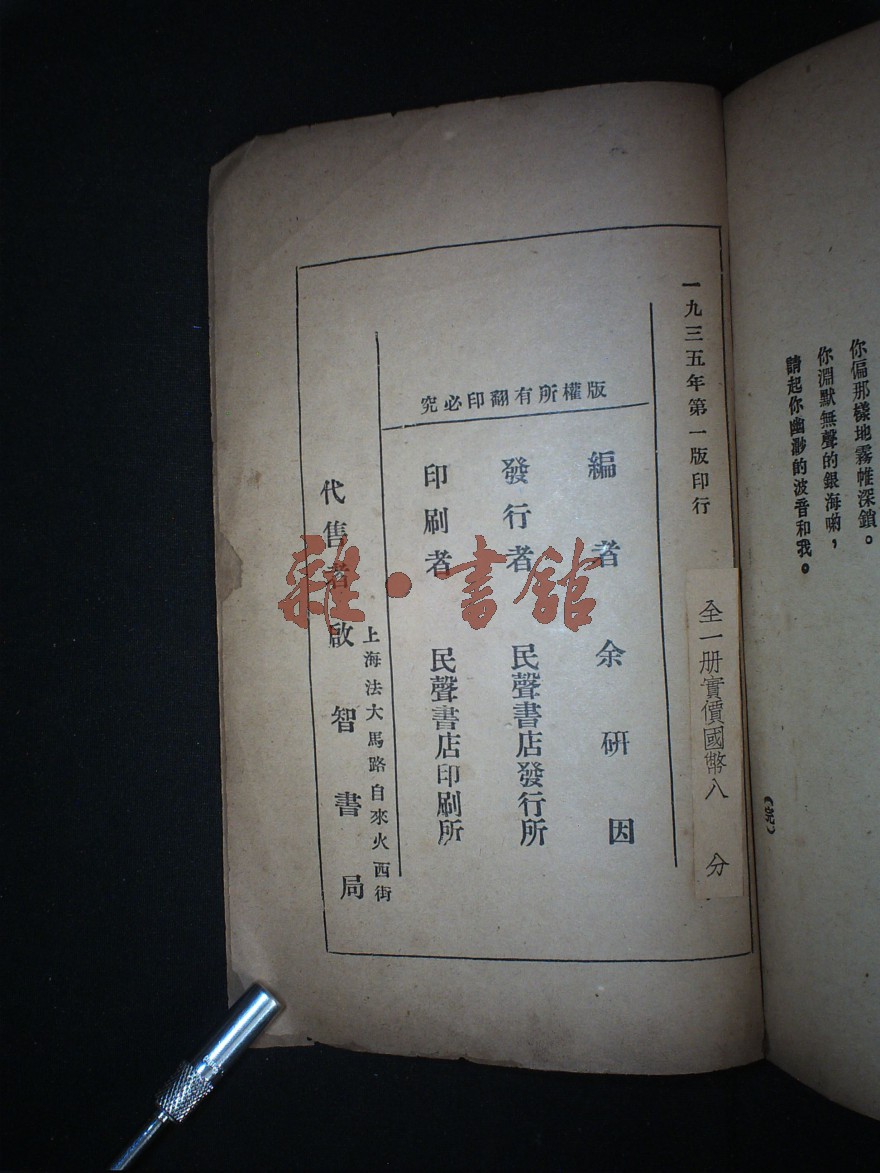 你偏那樣地霧帷深鎖。
你淵默無聲的銀海喲，
請起你幽渺的波音和我。
（完）
一九三五年第一版印行
全一册實價國幣八分
版權所有翻印必究
編者 余研因
發行者 民聲書店發行所
印刷者 民聲書店印刷所
上海法大馬路自來火西街
代售者 啟智書局
雜·書館